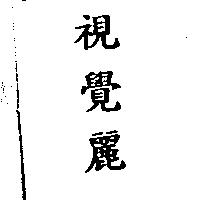 視覺麗